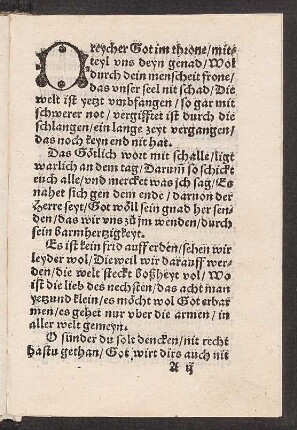 O reycher Got im throne/mit-
teyl vns deyn genad/Wol
durch dein menscheit frone/
das vnser seel nit schad/Die
welt ist yetzt vmbfangen/so gar mit
schwerer not/vergifftet ist durch die
schlangen/ein lange zeyt vergangen/
das noch keyn end nit hat.
Das Götlich wort mit schalle/ligt
warlich an dem tag/Darum̃ so schickt
euch alle/vnd mercket was ich sag/Es
nahet sich gen dem ende/daruon der
Herre seyt/Got wöll sein gnad her sen-
den/das wir vns zů jm wenden/durch
sein barmhertzigkeyt.
Es ist kein frid auff erden/sehen wir
leyder wol/Dieweil wir darauff wer-
den/die welt steckt boßheyt vol/Wo
ist die lieb des nechsten/das acht man
yetzund klein/es möcht wol Got erbar
men/es gehet nur vber die armen/in
aller welt gemeyn.
O sünder du solt dencken/nit recht
hastu gethan/Got wirt dirs auch nit
A ij